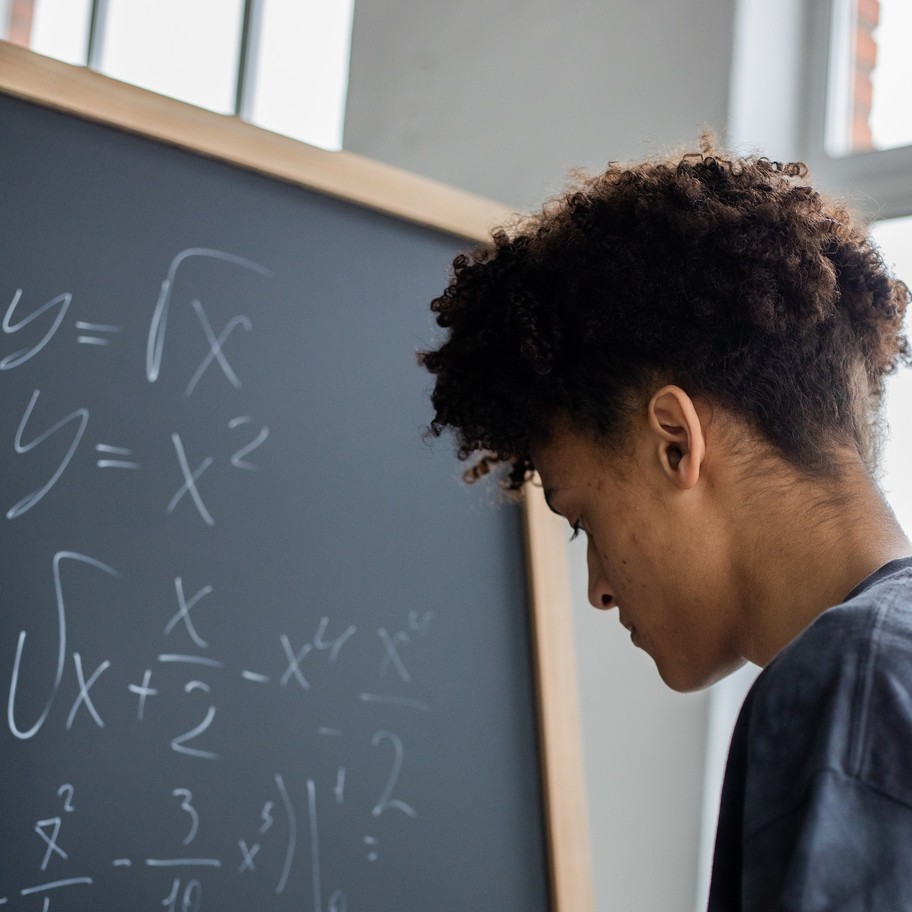 y = √x
y = x²
∫ x + x/2 - x⁴ - x⁴/2
x²/ - 3/10 x⁵) | ¹ =